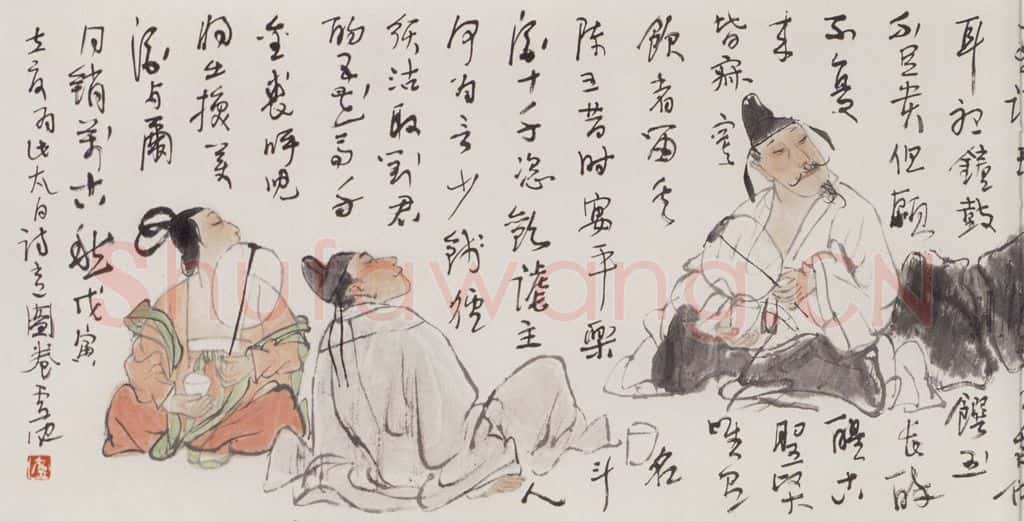 耳听鐘鼓饌玉
不足貴但願長醉
不復醒古
来聖賢
皆寂寞唯有
飲者留其名
陳王昔時宴平樂斗
酒十千恣歡謔主人
何为言少錢徑
須沽取對君
酌五花马千
金裘呼兒
将出換美
酒与爾
同銷萬古愁戊寅
为太白詩意圖卷
Shufawang.CN